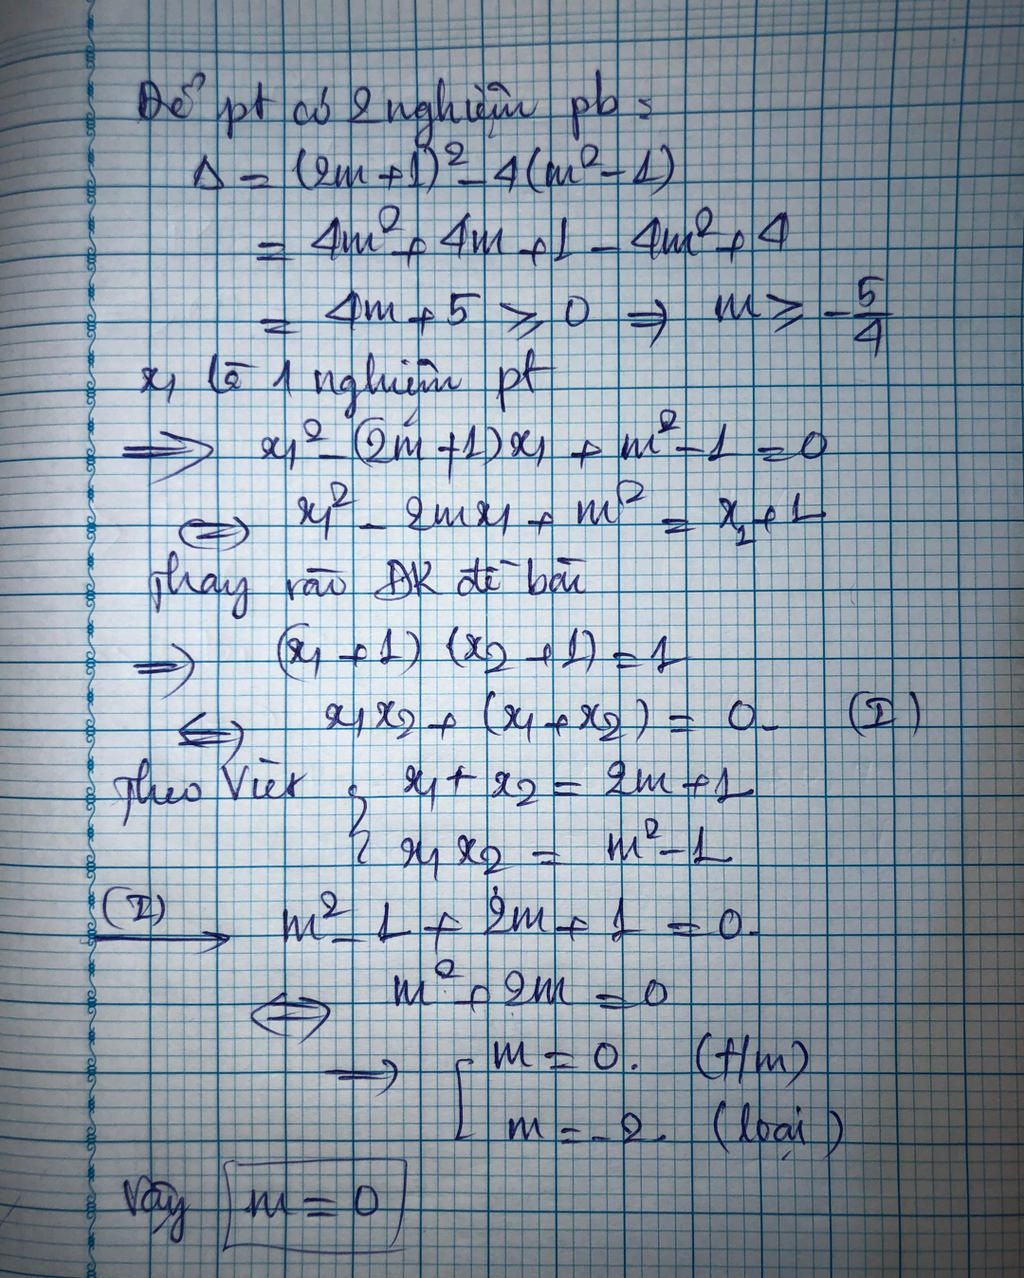 Để pt có 2 nghiệm pb:
Δ = (2m+1)² - 4(m²-1)
= 4m² + 4m + 1 - 4m² + 4
= 4m + 5 ≥ 0 ⇒ m ≥ -5/4
x₁ là 1 nghiệm pt
⇒ x₁² - (2m+1)x₁ + m² - 1 = 0
⇔ x₁² - 2mx₁ + m² = x₁ + 1
Thay vào ĐK đề bài
⇒ (x₁ + 1)(x₂ + 1) = 1
⇔ x₁x₂ + (x₁ + x₂) = 0. (I)
Theo Viét { x₁ + x₂ = 2m + 1
x₁x₂ = m² - 1
(I) → m² - 1 + 2m + 1 = 0.
⇔ m² + 2m = 0
→ [ m = 0. (t/m)
m = -2. (loại)
Vậy m = 0